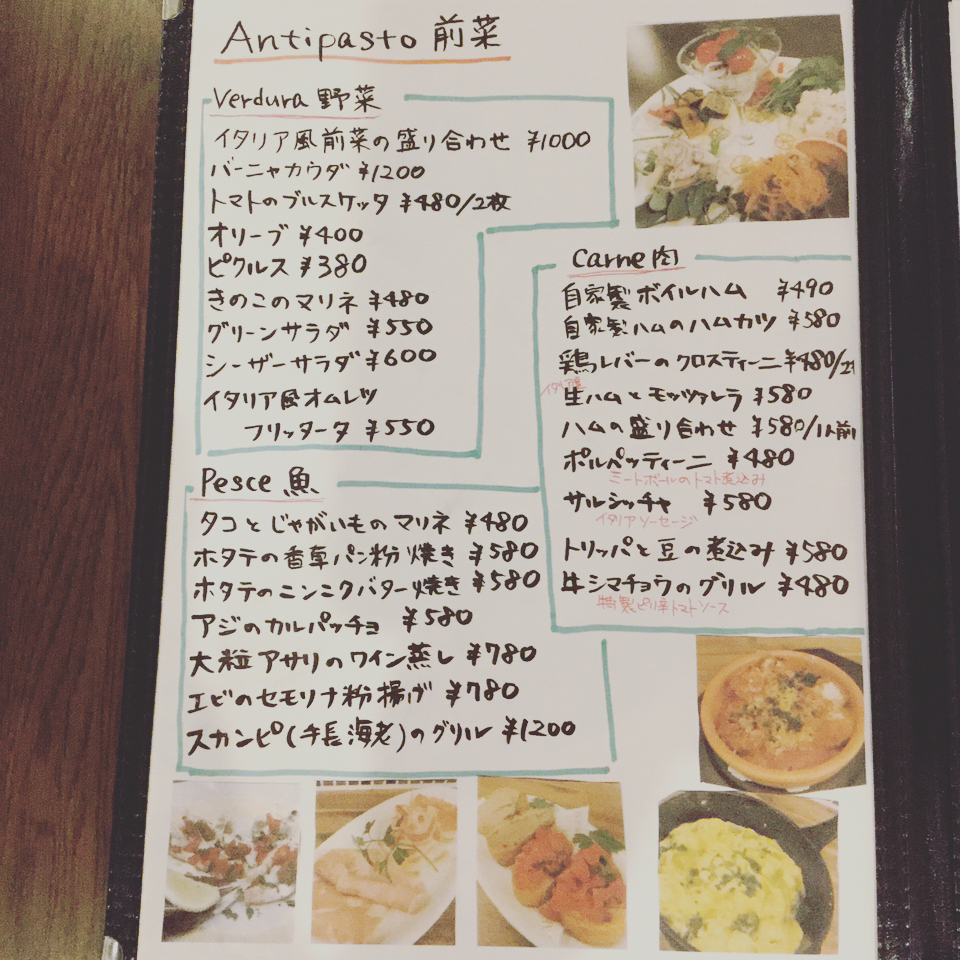 Antipasto 前菜
Verdura 野菜
イタリア風前菜の盛り合わせ ¥1000
バーニャカウダ ¥1200
トマトのブルスケッタ ¥480/2枚
オリーブ ¥400
ピクルス ¥380
きのこのマリネ ¥480
グリーンサラダ ¥550
シーザーサラダ ¥600
イタリア風オムレツ
フリッタータ ¥550
Carne 肉
自家製ボイルハム ¥490
自家製ハムのハムカツ ¥580
鶏レバーのクロスティーニ ¥480/2
イタリア産
生ハムとモッツァレラ ¥580
ハムの盛り合わせ ¥580/1人前
ポルペッティーニ ¥480
ミートボールのトマト煮込み
サルシッチャ ¥580
イタリアソーセージ
トリッパと豆の煮込み ¥580
牛シマチョウのグリル ¥480
特製ピリ辛トマトソース
Pesce 魚
タコとじゃがいものマリネ ¥480
ホタテの香草パン粉焼き ¥580
ホタテのニンニクバター焼き ¥580
アジのカルパッチョ ¥580
大粒アサリのワイン蒸し ¥780
エビのセモリナ粉揚げ ¥780
スカンピ(手長海老)のグリル ¥1200